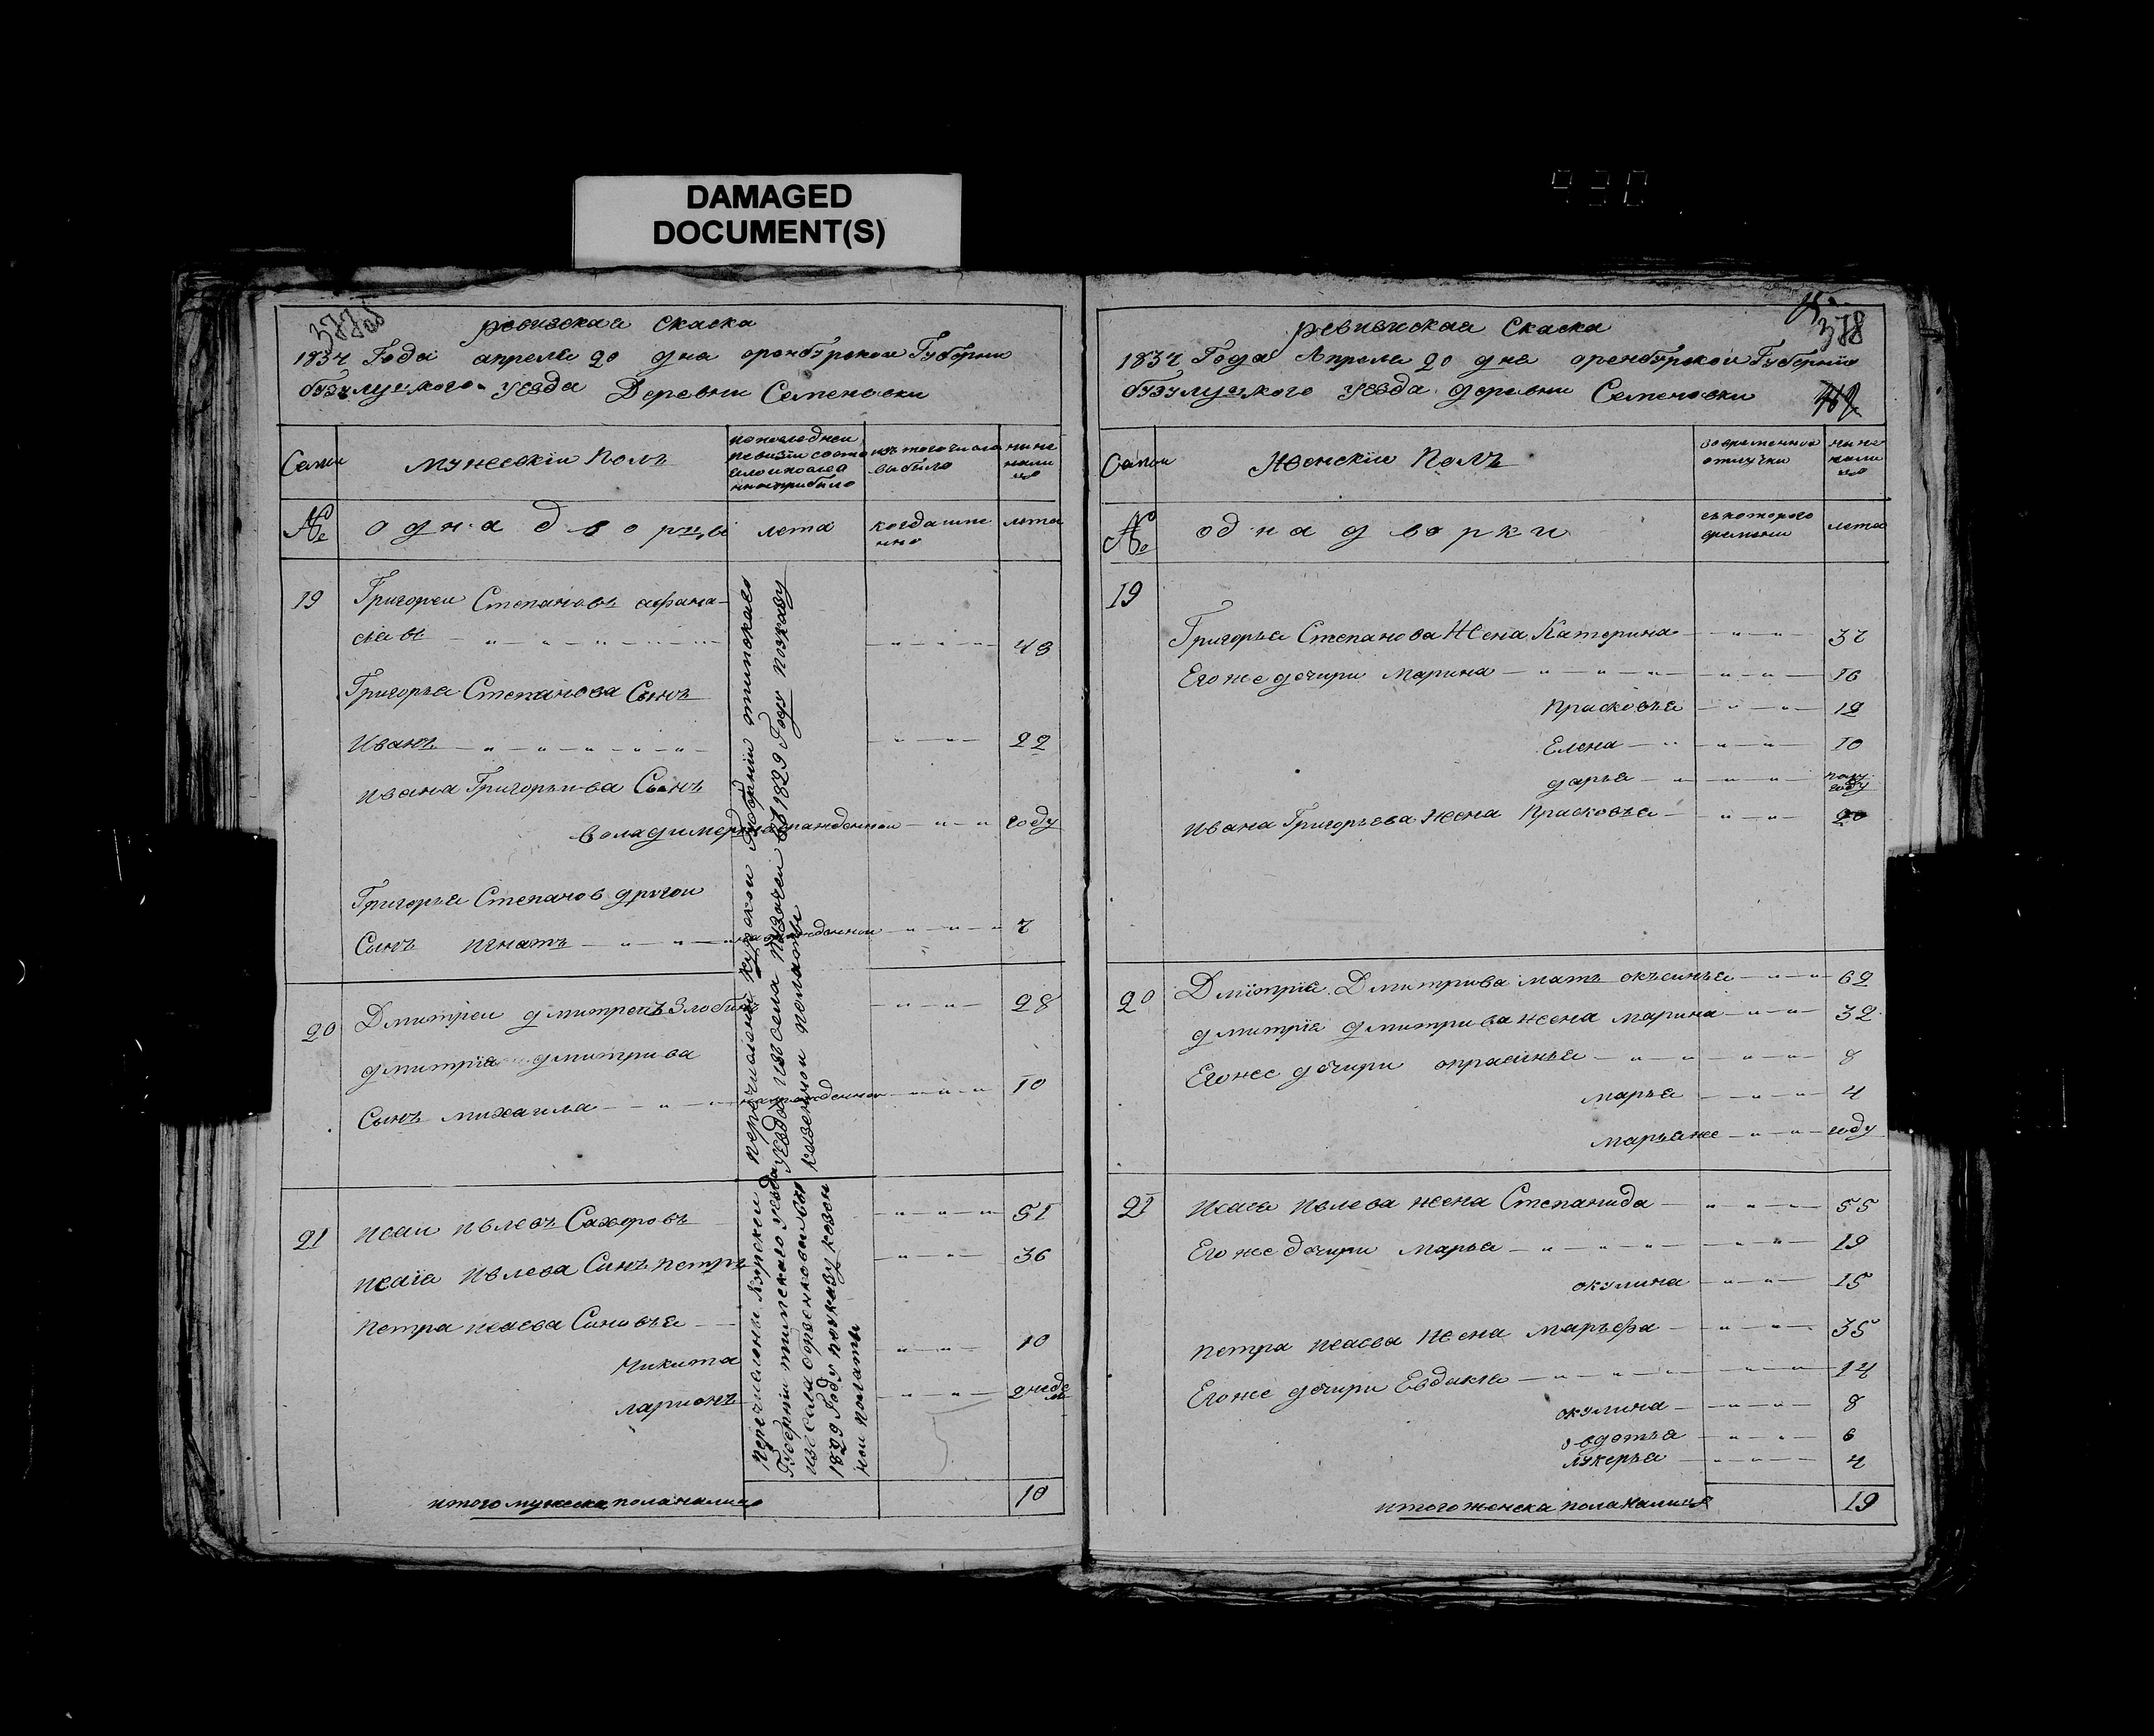 DAMAGED
DOCUMENT(S)
377 об
ревизская скаска
1834 Года апреля 20 дня оренбурскои Губернии
бузулуцкого уезда Деревни Семеновки
Семьи
мужескiи полъ
по последнеи
ревизiи состо
ялои после
оноиприбыло
изтогочисла
выбыло
ныне
нали
цо
№
однадворцы
лета
когдаиме
нно
лета
19
Григореи Степановъ афана-
сьевъ
43
Григорья Степанова Сынъ
Иванъ
22
ивана Григорьива Сынъ
володимеръ нарожденнои
году
Григорья Степанов другои
Сынъ игнатъ нарожденнои
7
20
Дмитреи дмитреивъ Злобинъ
28
дмитрiя дмитрива
Сынъ михаила нарожденнои
10
21
исаи ивлевъ Сахаровъ
51
исаiя ивлева Синъ петръ
36
петра исаева Синовья
Никита
10
ларионъ
2 неде
ли
перечислены курскои Губернiи тимскаго
уезда изсела въ 1829 Году поуказу
казеннои полаты
перечислены Курскои
Губернiи тимскаго уезда
изсела
1829 Году поуказу казен
нои полаты
итого мужеска пола налицо
10
378
ревизская Скаска
1834 Года Апреля 20 дня оренбурскои Губернiи
бузулуцкого уезда деревни Семеновки
Семьи
Женскiи Полъ
вовременнои
отлучки
ныне
нали
цо
№
однадворки
скоторого
времени
лета
19
Григорья Степанова Жена Катерина
37
Его же дочири марина
16
Прасковья
12
Елена
10
дарья
полу
году
ивана Григорьева жена Прасковья
20
20
Дмiтрiя Дмитрива мать окъсинья
62
дмитрiя дмитрива жена марина
32
Его же дочири опрасинья
8
марья
4
марья же
году
21
исаiя ивлева жена Степанида
55
Его же дочири марья
19
окулина
15
петра исаева жена марьфа
35
Его же дочири Евдакия
14
окулина
8
овдотья
6
лукерья
4
итого женска пола налицо
19